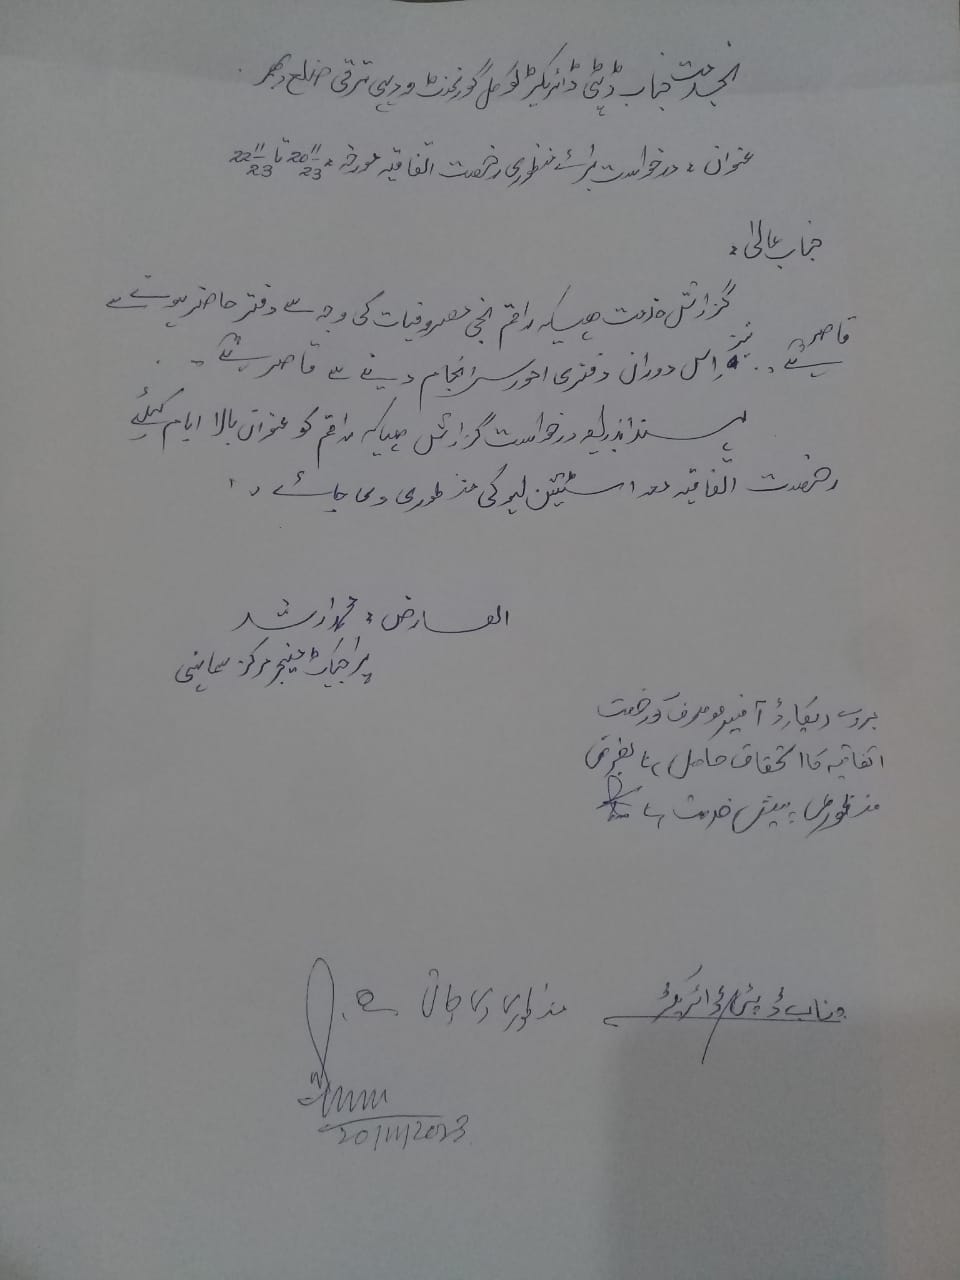 بخدمت جناب ڈپٹی ڈائریکٹر لوکل گورنمنٹ و دیہی ترقی ضلع بھمبر۔
عنوان: درخواست برائے منظوری رخصت اتفاقیہ مورخہ 20/11/23 تا 22/11/23
جناب عالی:
گزارش خدمت ہیکہ راقم نجی مصروفیات کی وجہ سے دفتر حاضر ہونے سے
قاصر ہے۔ نیز اس دوران دفتری امور سرانجام دینے سے قاصر ہے۔
لہذا بذریعہ درخواست گزارش ہیکہ راقم کو عنوان بالا ایام کیلئے
رخصت اتفاقیہ معہ اسٹیشن لیو کی منظوری دی جائے۔
العارض: محمد ارشد
پراجیکٹ مینجر مرکز سماہنی
بروے ریکارڈ آفیسر موصوف کو رخصت
اتفاقیہ کا استحقاق حاصل ہے بغرض
منظوری پیش خدمت ہے
جناب ڈپٹی ڈائریکٹر
منظوری دی جاتی ہے۔
20/11/2023